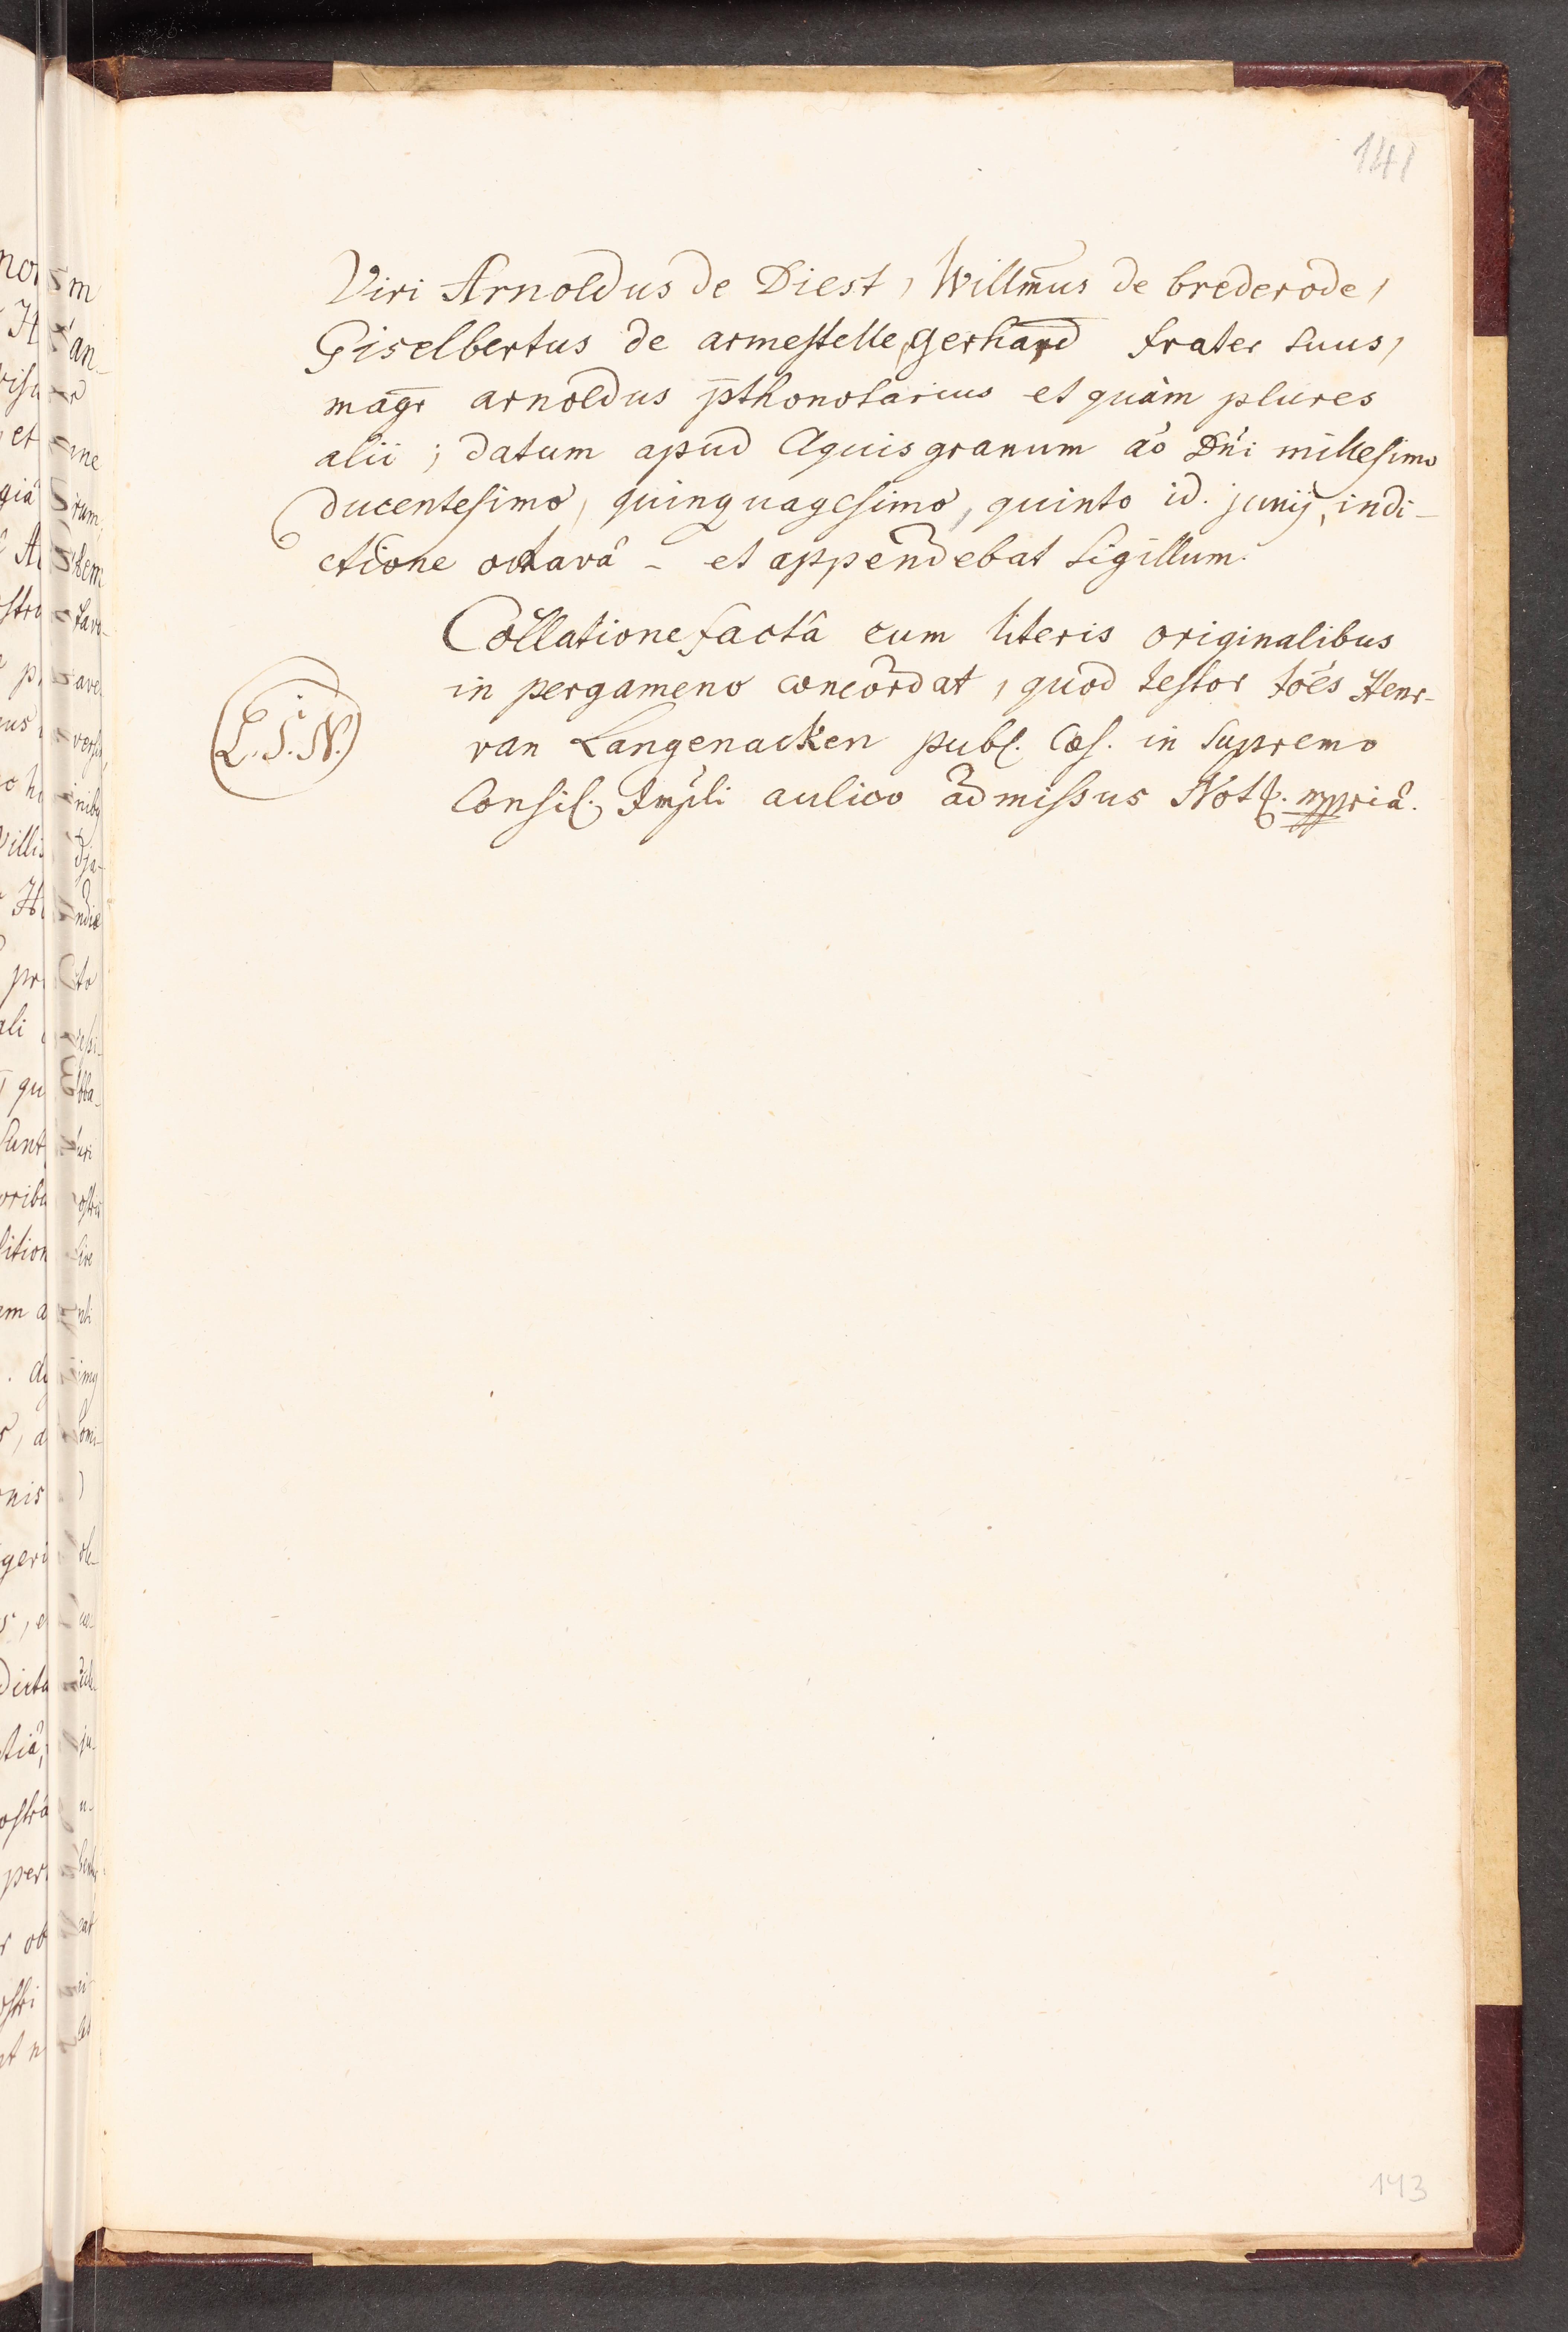 141
Viri Arnoldus de Diest, Willm̄us de brederode,
Giselbertus de armestelle, gerhard frater suus,
mag̅r arnoldus p̅thonotarius et quàm plures
alii; datum apud Aquisgranum aó Dńi millesimo
ducentesimo, quinquagesimo, quinto id. junij, indi-
ctione octavâ - et appendebat Sigillum.
Collatione factâ cum literis originalibus
in pergameno concordat, quod testor Jóës Henr-
van Langenacken publ. Cæs. in Supremo
(L.S.N.)
Consil. Impl̃i aulico admissus Not̃. mppriâ.
143